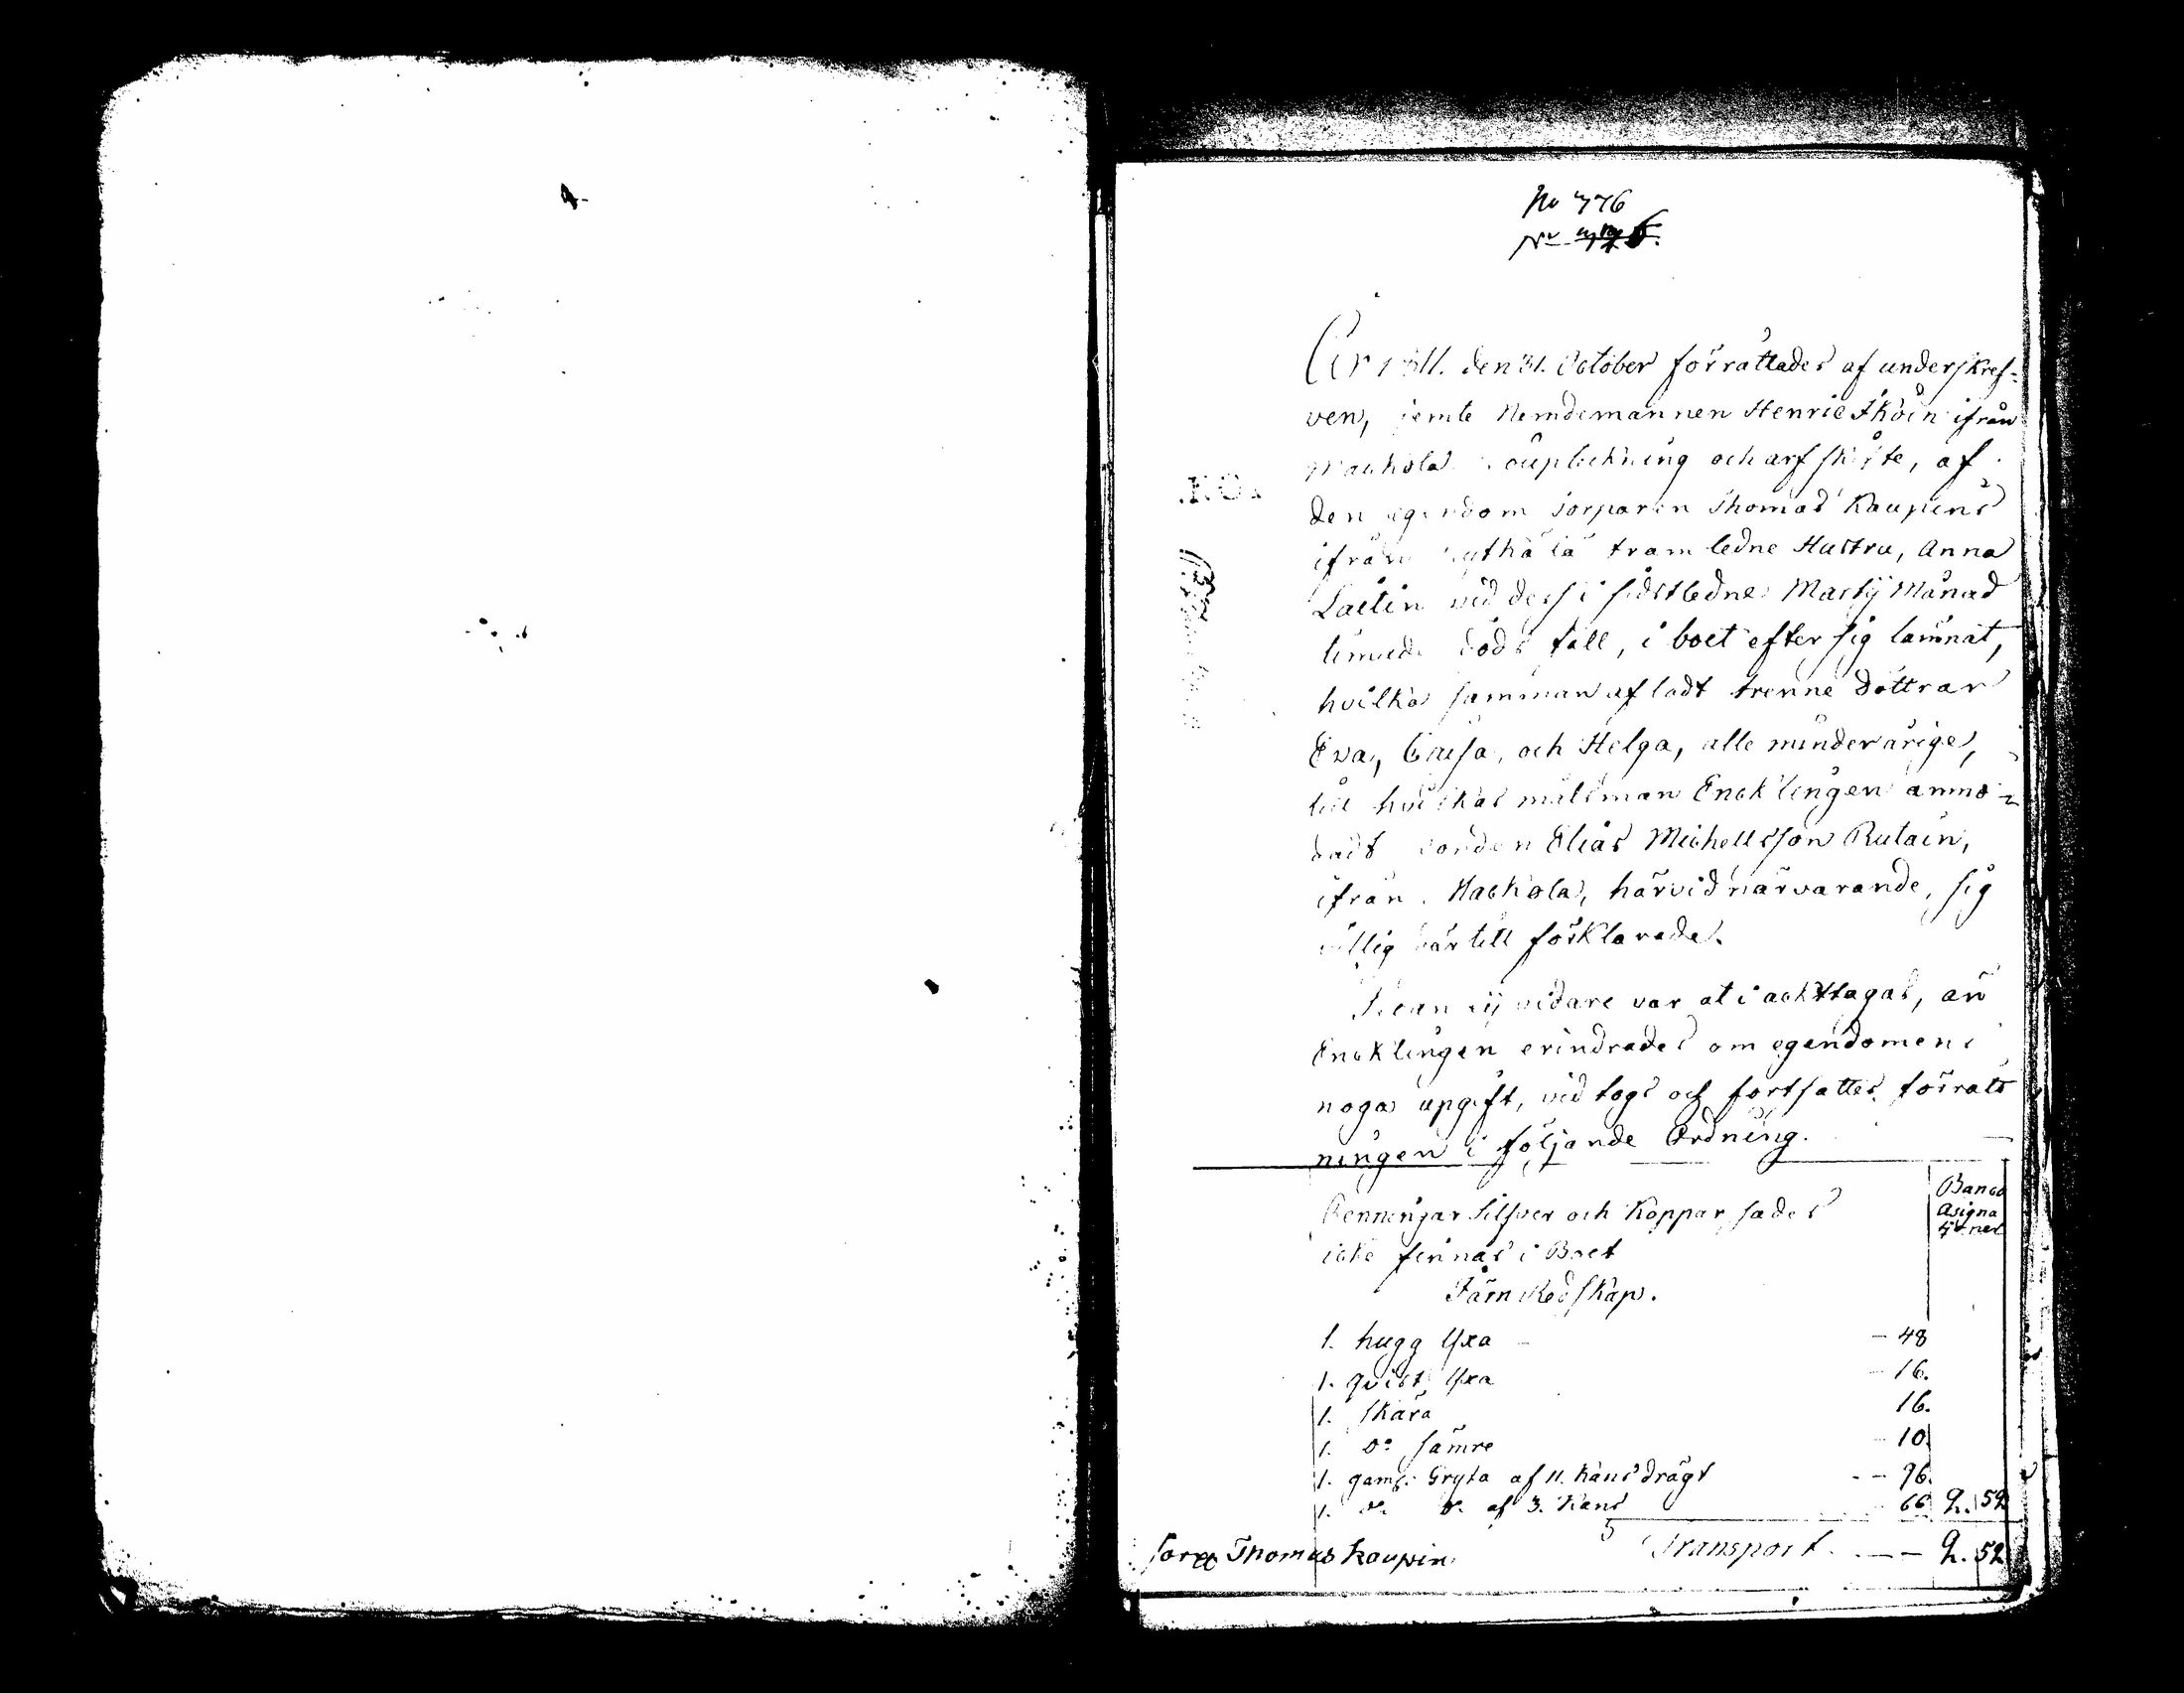 No 776
År 1811. den 31. October förrättades af underskref-
ven, jemte Nemdemannen Henric Sköin ifrån
och arfskifte, af
den egendom Torparen Thomas Kaupins
ifrån framledne Hustru, Anna
Laitin vid dess i sidstledne Martij Månad
timade döds fall, i boet efter sig lämnat,
hvilka samman afladt trenne döttrar
Eva, Caisa, och Helga, alle minderårige,
till hvilkas målsman Encklingen anmo-
dadt Bonden Elias Michellsson Rutain,
ifrån Hackola, härvid närvarande, sig
villig härtill förklarade.
Sedan ej vidare var at i ackttagas, än
Encklingen erindrades om egendomens
noga upgift, vid togs och fortsattes förrätt
ningen i följande Ordning.
Banco
Asigna
tioner
Penningar Silfver och Koppar sades
icke finnas i Boet
Järn Redskap.
1. hugg Yxa - - 48
1. qvist Yxa - 16.
1. skära 16.
1. do sämre - 10.
1. gaml: Gryta af 11. kans drägt - - 96.
1. do do af 3. Kans 66 2. 52
Transport. - - 2. 52
Thomas Kaupin